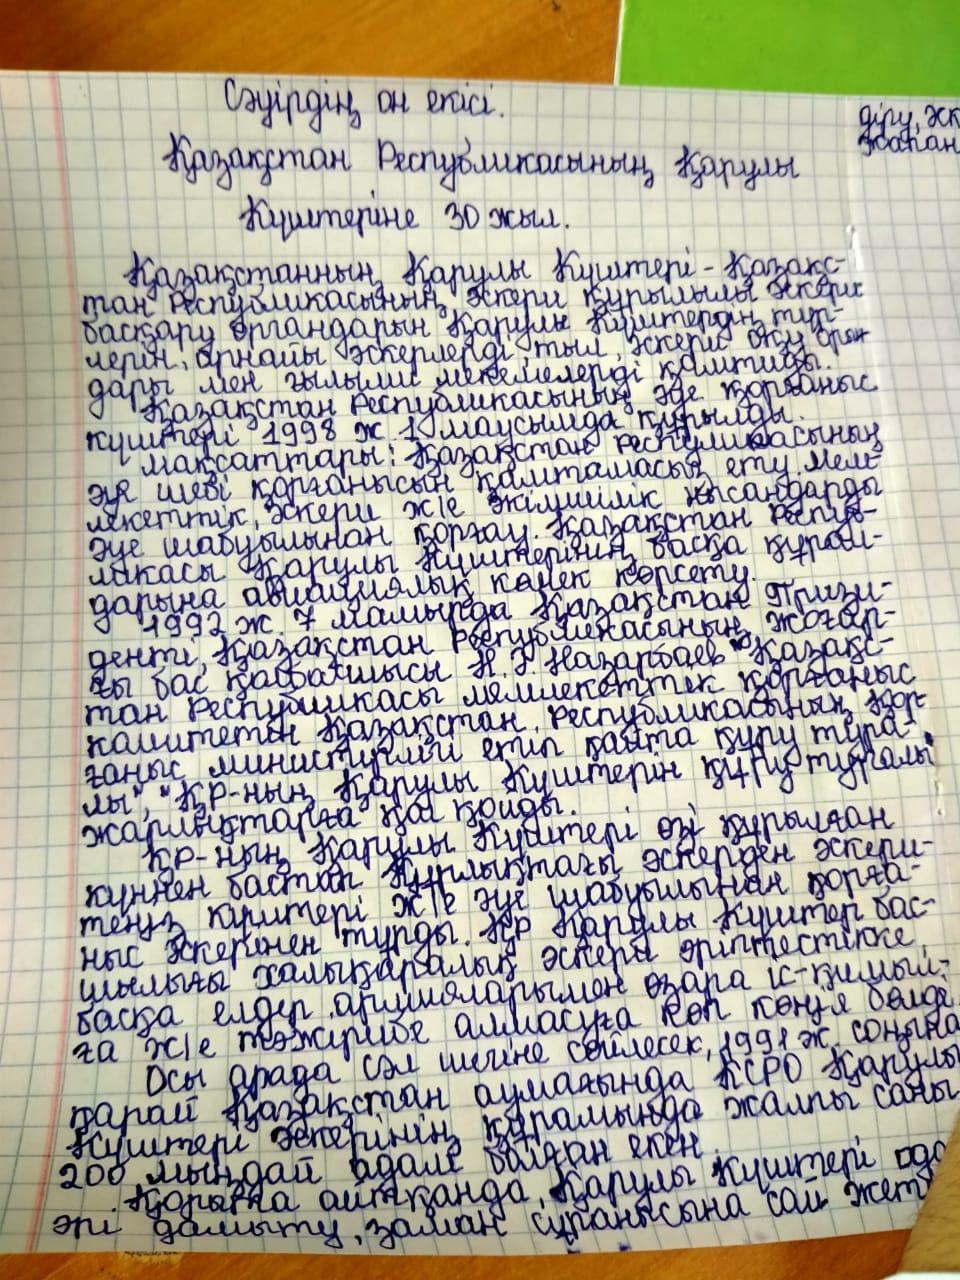 Сәуірдің он екісі.
Қазақстан Республикасының Қарулы
Күштеріне 30 жыл.
Қазақстанның Қарулы Күштері - Қазақс-
тан Республикасының әскери құрылылы әскери
басқару органдарын Қарулы Күштердің түр-
лерін, арнайы әскерлерді тыл, әскери оқу орын
дары мен ғылыми мекемелерді қамтиды.
Қазақстан Республикасының әуе қорғаныс
күштері 1998 ж. 1 маусымда құрылды.
Мақсаттары: Қазақстан Республикасының
әуе шебі қорғанысын қамтамасыз ету, мем-
лекеттік, әскери ж/е әкімшілік нысандарды
әуе шабуылынан қорғау. Қазақстан Респуб-
ликасы Қарулы Күштерінің басқа құрам-
дарына авиациялық көмек көрсету.
1992 ж. 7 мамырда Қазақстан Призи-
денті, Қазақстан Республикасының жоғар-
ғы бас қолбашысы Н.Ә. Назарбаев "Қазақс-
тан Республикасы мемлекеттек қорғаныс
камитетін Қазақстан Республикасының Қор-
ғаныс министрлігі етіп қайта құру тура-
лы", "ҚР-ның Қарулы Күштерін құру туралы
жарлықтарға қол қойды.
ҚР-ның Қарулы Күштері өзі құрылған
күннен бастап Құрлықтағы әскерден әскери-
теңіз күштері ж/е әуе шабуылынан қорға-
ныс әскерінен тұрды. ҚР Қарулы Күштер бас-
шылығы халықаралық әскери әріптестікке,
басқа елдер армияларымен өзара іс-қимыл-
ға ж/е тәжірибе алмасуға көп көңіл бөледі.
Осы арада сәл шегіне сөйлесек, 1991 ж. соңына
қарай Қазақстан аумағында КСРО Қарулы
Күштері әскерінің құрамында жалпы саны
200 мыңдай адам болған екен.
Қорыта айтқанда, Қарулы Күштері ода
әрі дамыту, заман сұранысына сай жет
діру, жк
жапан